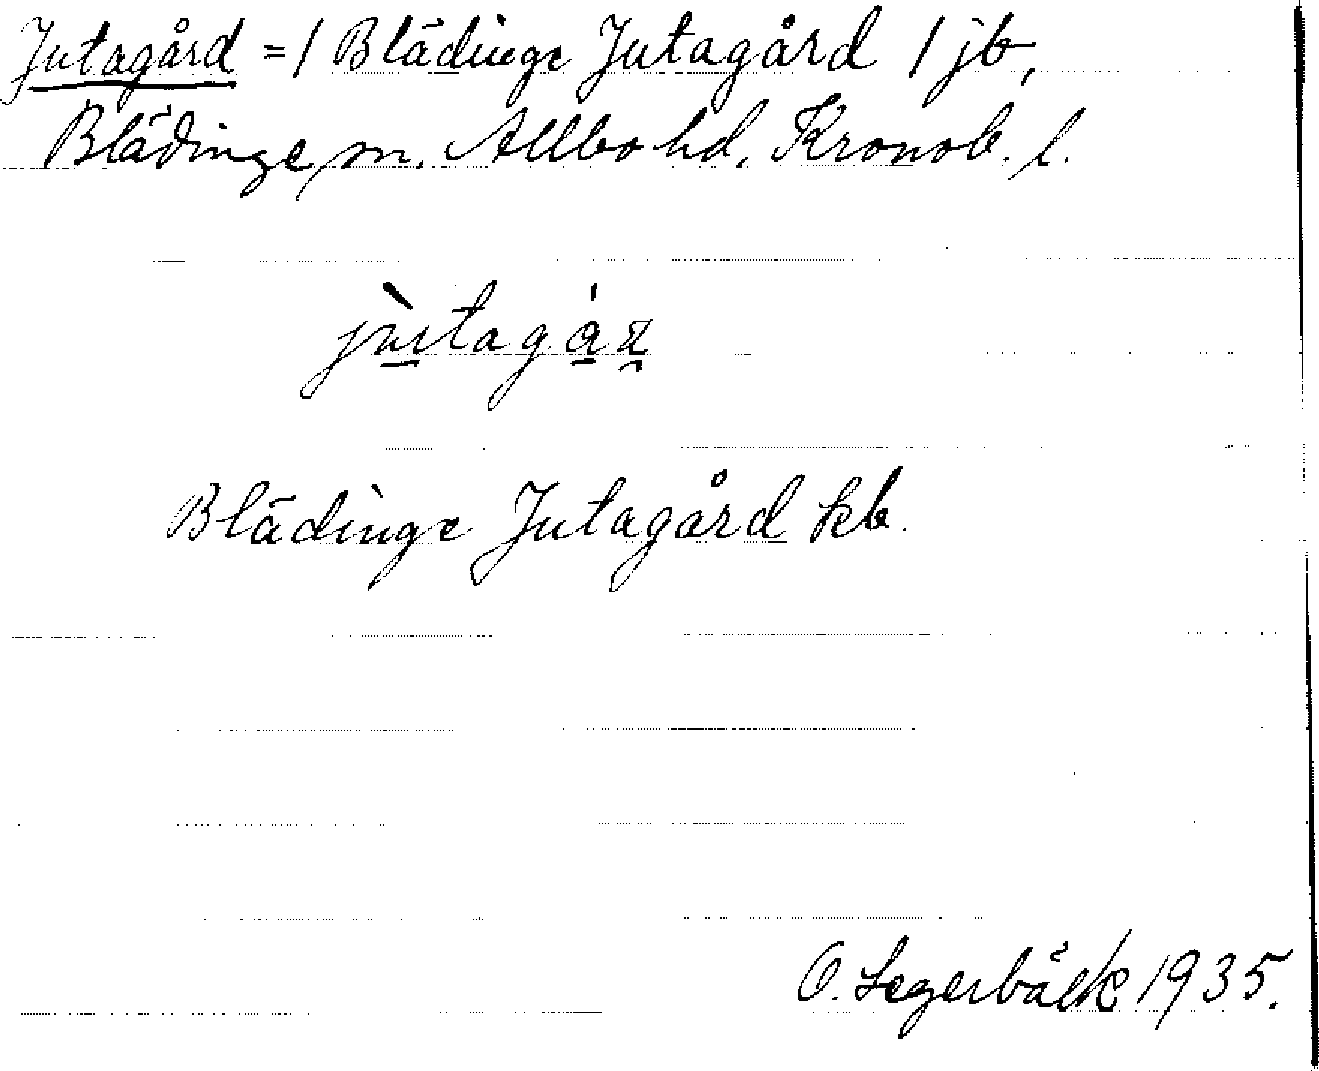 Jutagård = / Blädinge Jutagård / jb,
Blädinge sn. Allbo hd. Kronob. l.
Blädinge Jutagård kb.
O. Segerbäck 1935.